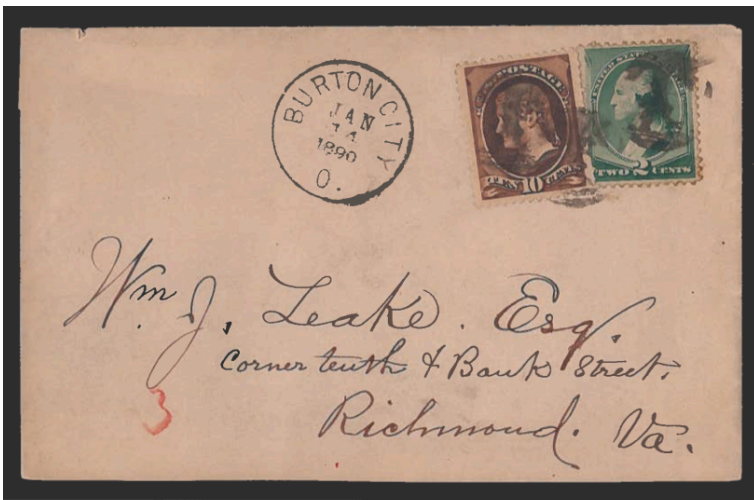 BURTON CITY
JAN
14
1890
O.
POSTAGE
TEN 10 CENTS
TWO 2 CENTS
Wm J. Leake. Esq.
Corner tenth & Bank Street.
Richmond. Va.
3